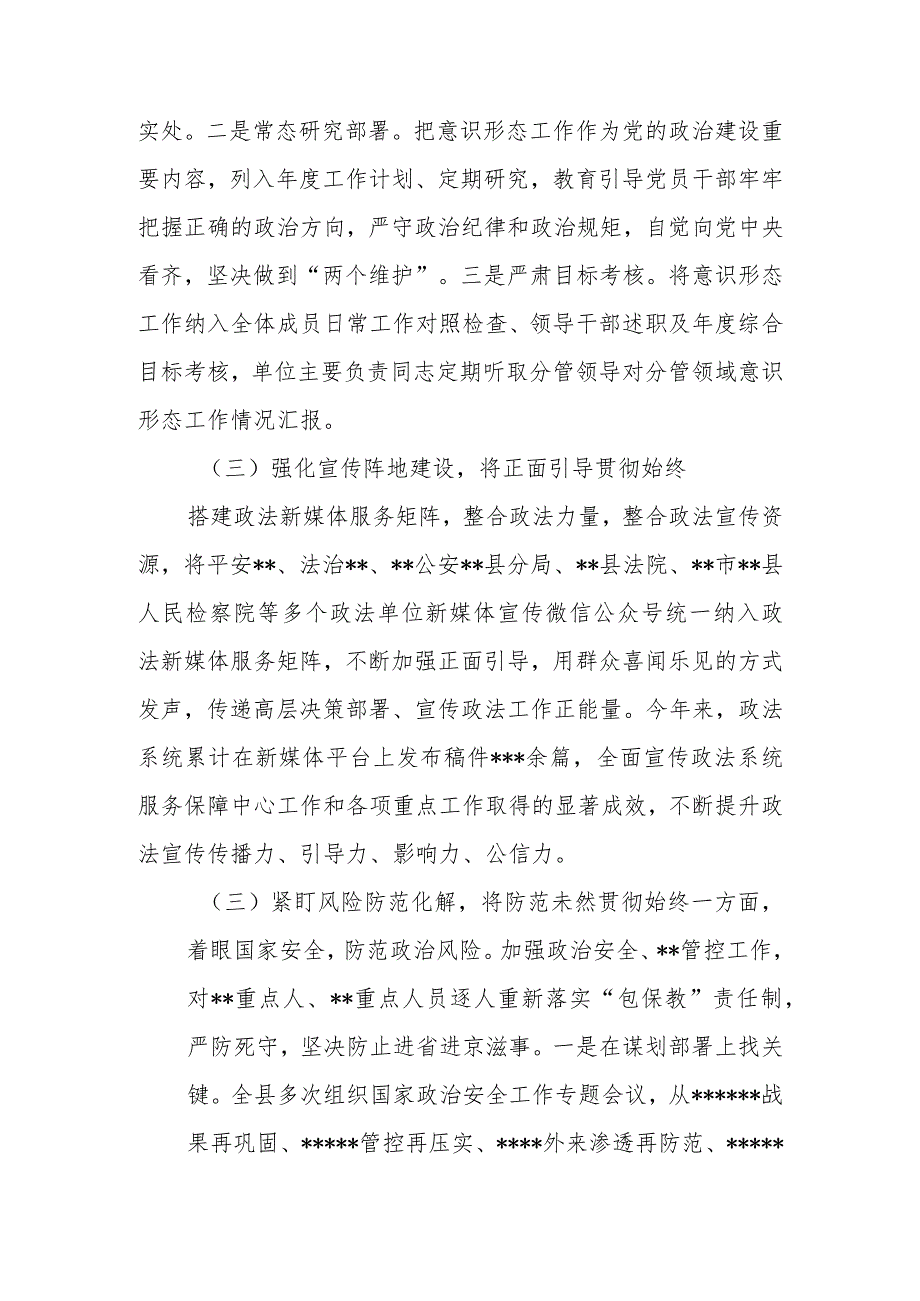 实处。二是常态研究部署。把意识形态工作作为党的政治建设重
要内容，列入年度工作计划、定期研究，教育引导党员干部牢牢
把握正确的政治方向，严守政治纪律和政治规矩，自觉向党中央
看齐，坚决做到“两个维护”。三是严肃目标考核。将意识形态
工作纳入全体成员日常工作对照检查、领导干部述职及年度综合
目标考核，单位主要负责同志定期听取分管领导对分管领域意识
形态工作情况汇报。
（三）强化宣传阵地建设，将正面引导贯彻始终
搭建政法新媒体服务矩阵，整合政法力量，整合政法宣传资
源，将平安**、法治**、**公安**县分局、**县法院、**市**县
人民检察院等多个政法单位新媒体宣传微信公众号统一纳入政
法新媒体服务矩阵，不断加强正面引导，用群众喜闻乐见的方式
发声，传递高层决策部署、宣传政法工作正能量。今年来，政法
系统累计在新媒体平台上发布稿件***余篇，全面宣传政法系统
服务保障中心工作和各项重点工作取得的显著成效，不断提升政
法宣传传播力、引导力、影响力、公信力。
（三）紧盯风险防范化解，将防范未然贯彻始终一方面，
着眼国家安全，防范政治风险。加强政治安全、**管控工作，
对**重点人、**重点人员逐人重新落实“包保教”责任制，
严防死守，坚决防止进省进京滋事。一是在谋划部署上找关
键。全县多次组织国家政治安全工作专题会议，从******战
果再巩固、*****管控再压实、****外来渗透再防范、*****